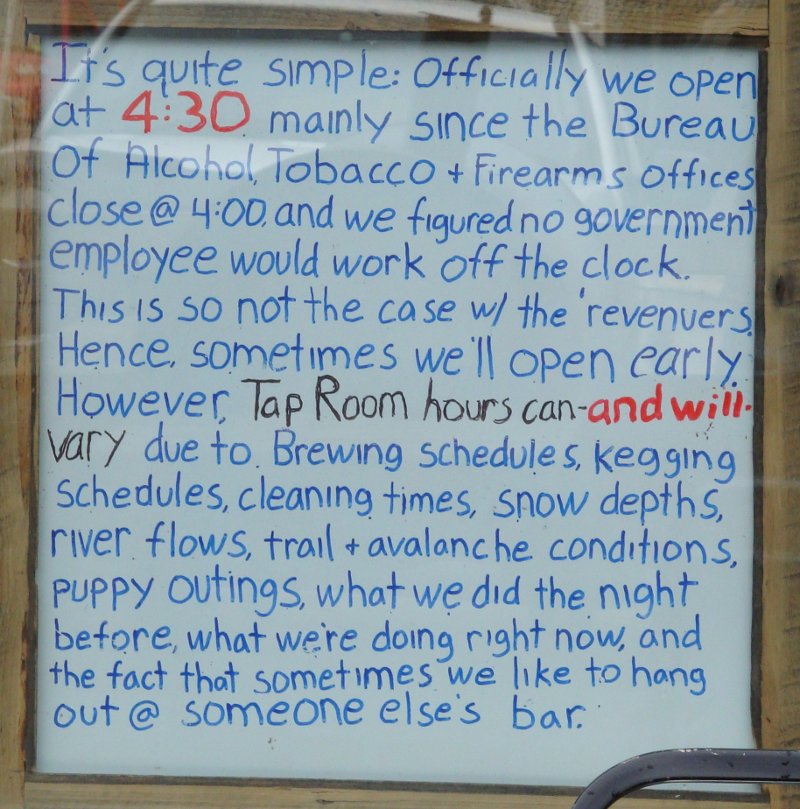 It's quite simple: Officially we open
at 4:30 mainly since the Bureau
Of Alcohol, Tobacco + Firearms offices
close @ 4:00, and we figured no government
employee would work off the clock.
This is so not the case w/ the 'revenuers.
Hence, sometimes we'll open early.
However, Tap Room hours can-and will-
vary due to: Brewing schedules, kegging
schedules, cleaning times, snow depths,
river flows, trail + avalanche conditions,
puppy outings, what we did the night
before, what we're doing right now, and
the fact that sometimes we like to hang
out @ someone else's bar.